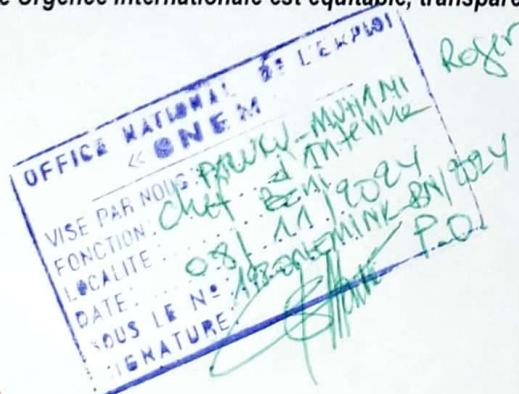 e Urgence Internationale est équitable, transpare
OFFICE NATIONAL DE L'EMPLOI
« ONEM
Roger
VISE PAR NOUS: PALUKU-MUHINI
FONCTION: Chef d'Antenne
LOCALITE: BENI
DATE: 08/11/2024
SOUS LE Nº
SIGNATURE:
P.O.